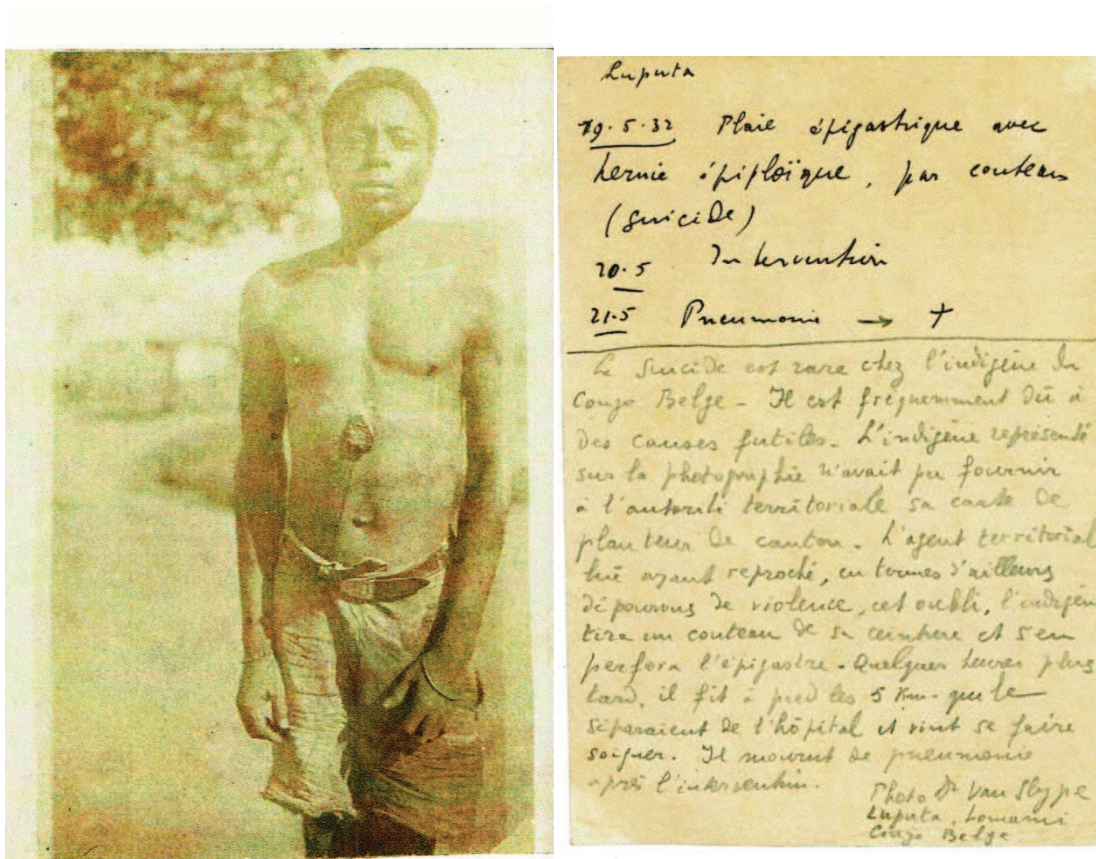 Luputa
19.5.32 Plaie épigastrique avec
hernie épiploïque, par couteau
(suicide)
20.5 Intervention
21.5 Pneumonie → +
Le suicide est rare chez l'indigène du
Congo Belge - Il est fréquemment dû à
des causes futiles. L'indigène représenté
sur la photographie n'avait pu fournir
à l'autorité territoriale sa carte de
planteur de canton. L'agent territorial
lui ayant reproché, en termes d'ailleurs
dépourvus de violence, cet oubli, l'indigèn
tira un couteau de sa ceinture et s'en
perfora l'épigastre - Quelques heures plus
tard, il fit à pied les 5 Km. qui le
séparaient de l'hôpital et vint se faire
soigner. Il mourut de pneumonie
après l'intervention.
Photo Dr Van Slype
Luputa, Lomami
Congo Belge